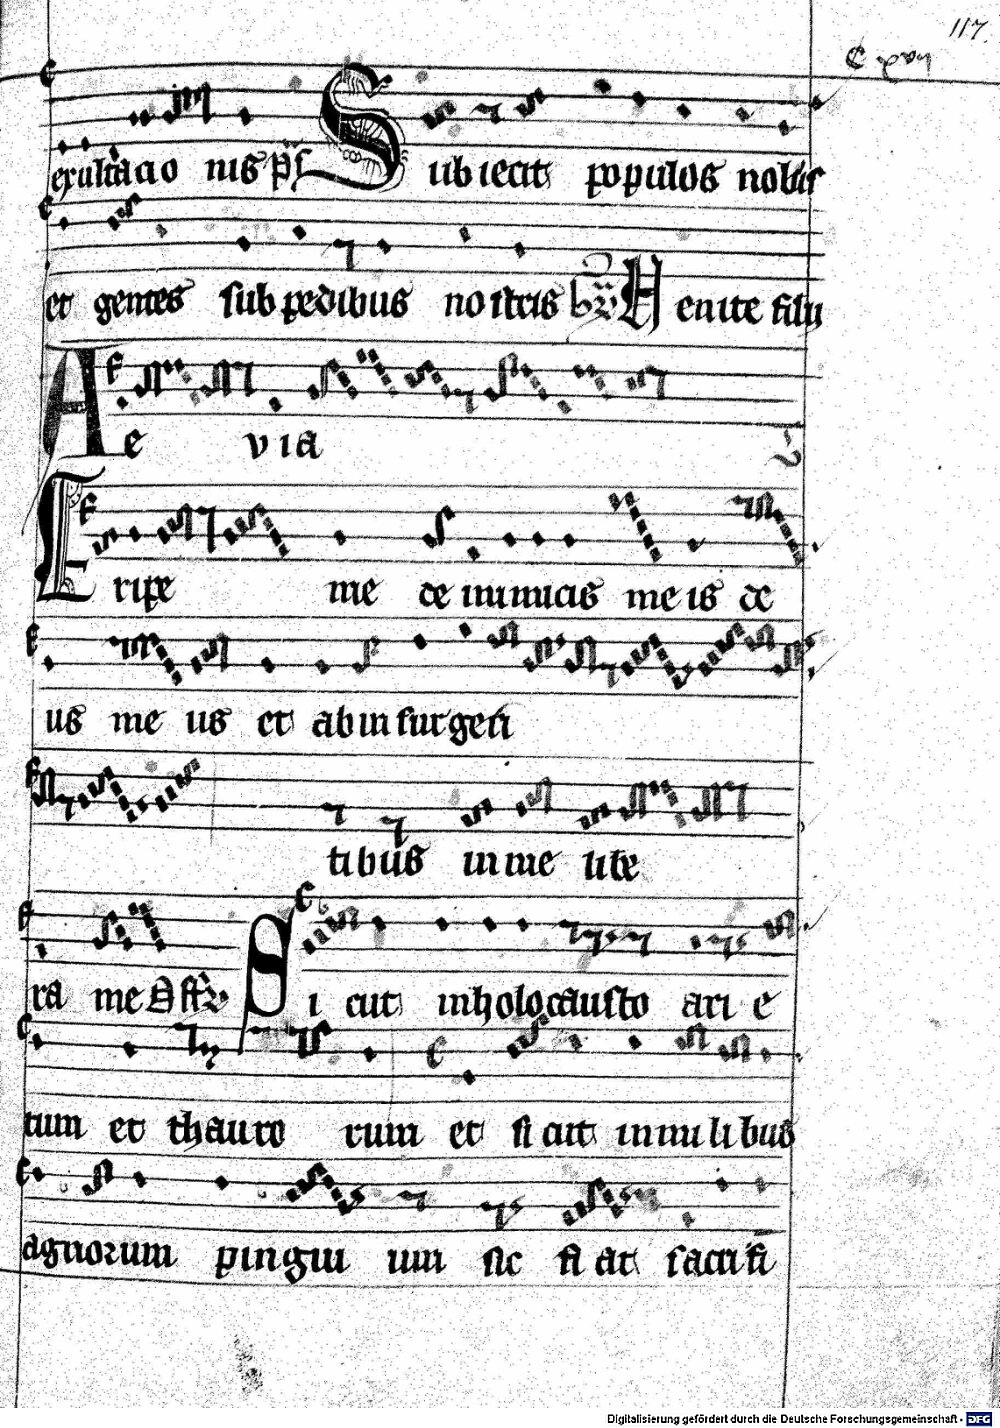 117.
C xvij
exultacio nis ps Subiecit populos nobis
et gentes sub pedibus nostris Venite filii
Ae via
Eripe me de inimicis meis de
us me us et ab in surgen
tibus in me libe
ra me Sicut in holocausto arie
tum et thauro rum et sicut in mi li bus
agnorum pingui um sic fi at sacrifi
Digitalisierung gefördert durch die Deutsche Forschungsgemeinschaft - DFG